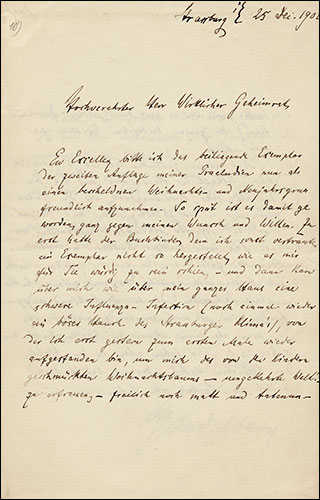 Strassburg i/E 25 Dec. 190
Hochverehrter Herr Wirklicher Geheimrat,
Ew Excellenz bitte ich das beiliegende Exemplar
der zweiten Auflage meiner Praeludien nun als
einen bescheidnen Weihnachts- und Neujahrsgruss
freundlich aufzunehmen. So spät ist es damit ge
worden, ganz gegen meinen Wunsch und Willen. Zu
erst hatte der Buchbinder, dem ich sonst vertraute
ein Exemplar nicht so hergestellt, wie es mir
für Sie würdig zu sein schien, – und dann kam
über mich wie über mein ganzes Haus eine
schwere Influenza-Infection (noch einmal wieder
ein böser Hauch des Strassburger Klima's), von
der ich erst gestern zum ersten Male wieder
aufgestanden bin, um mich des von den Kindern
geschmückten Weihnachtsbaums – umgekehrte Welt! –
zu erfreuen, – freilich noch matt und